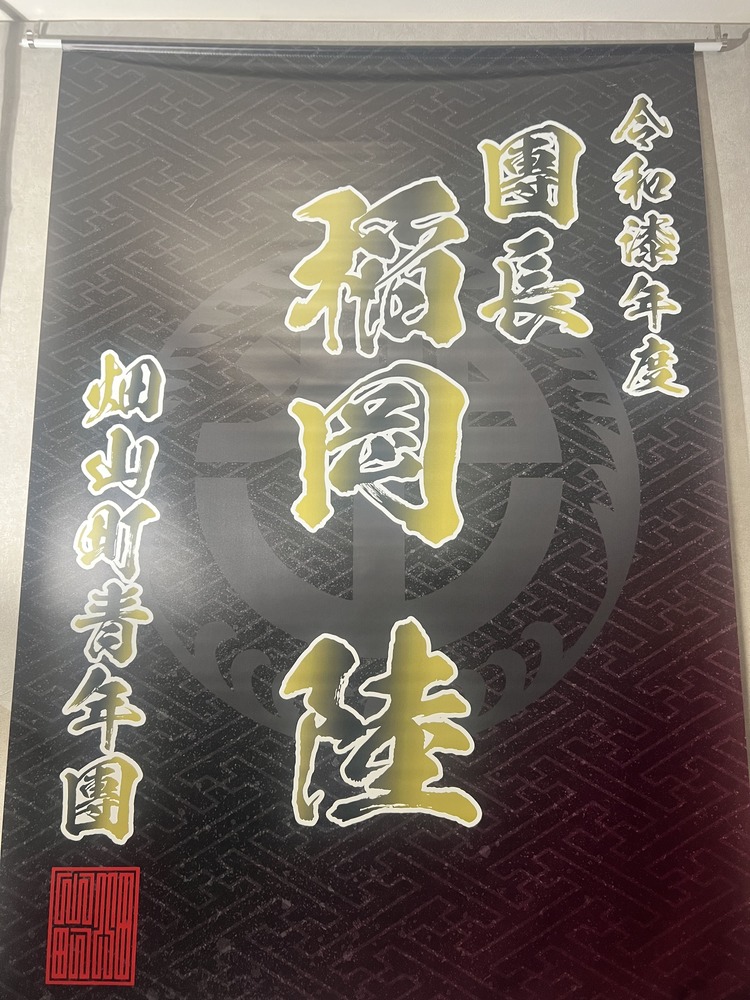 令和漆年度
團長
稲岡 陸
畑山町青年團